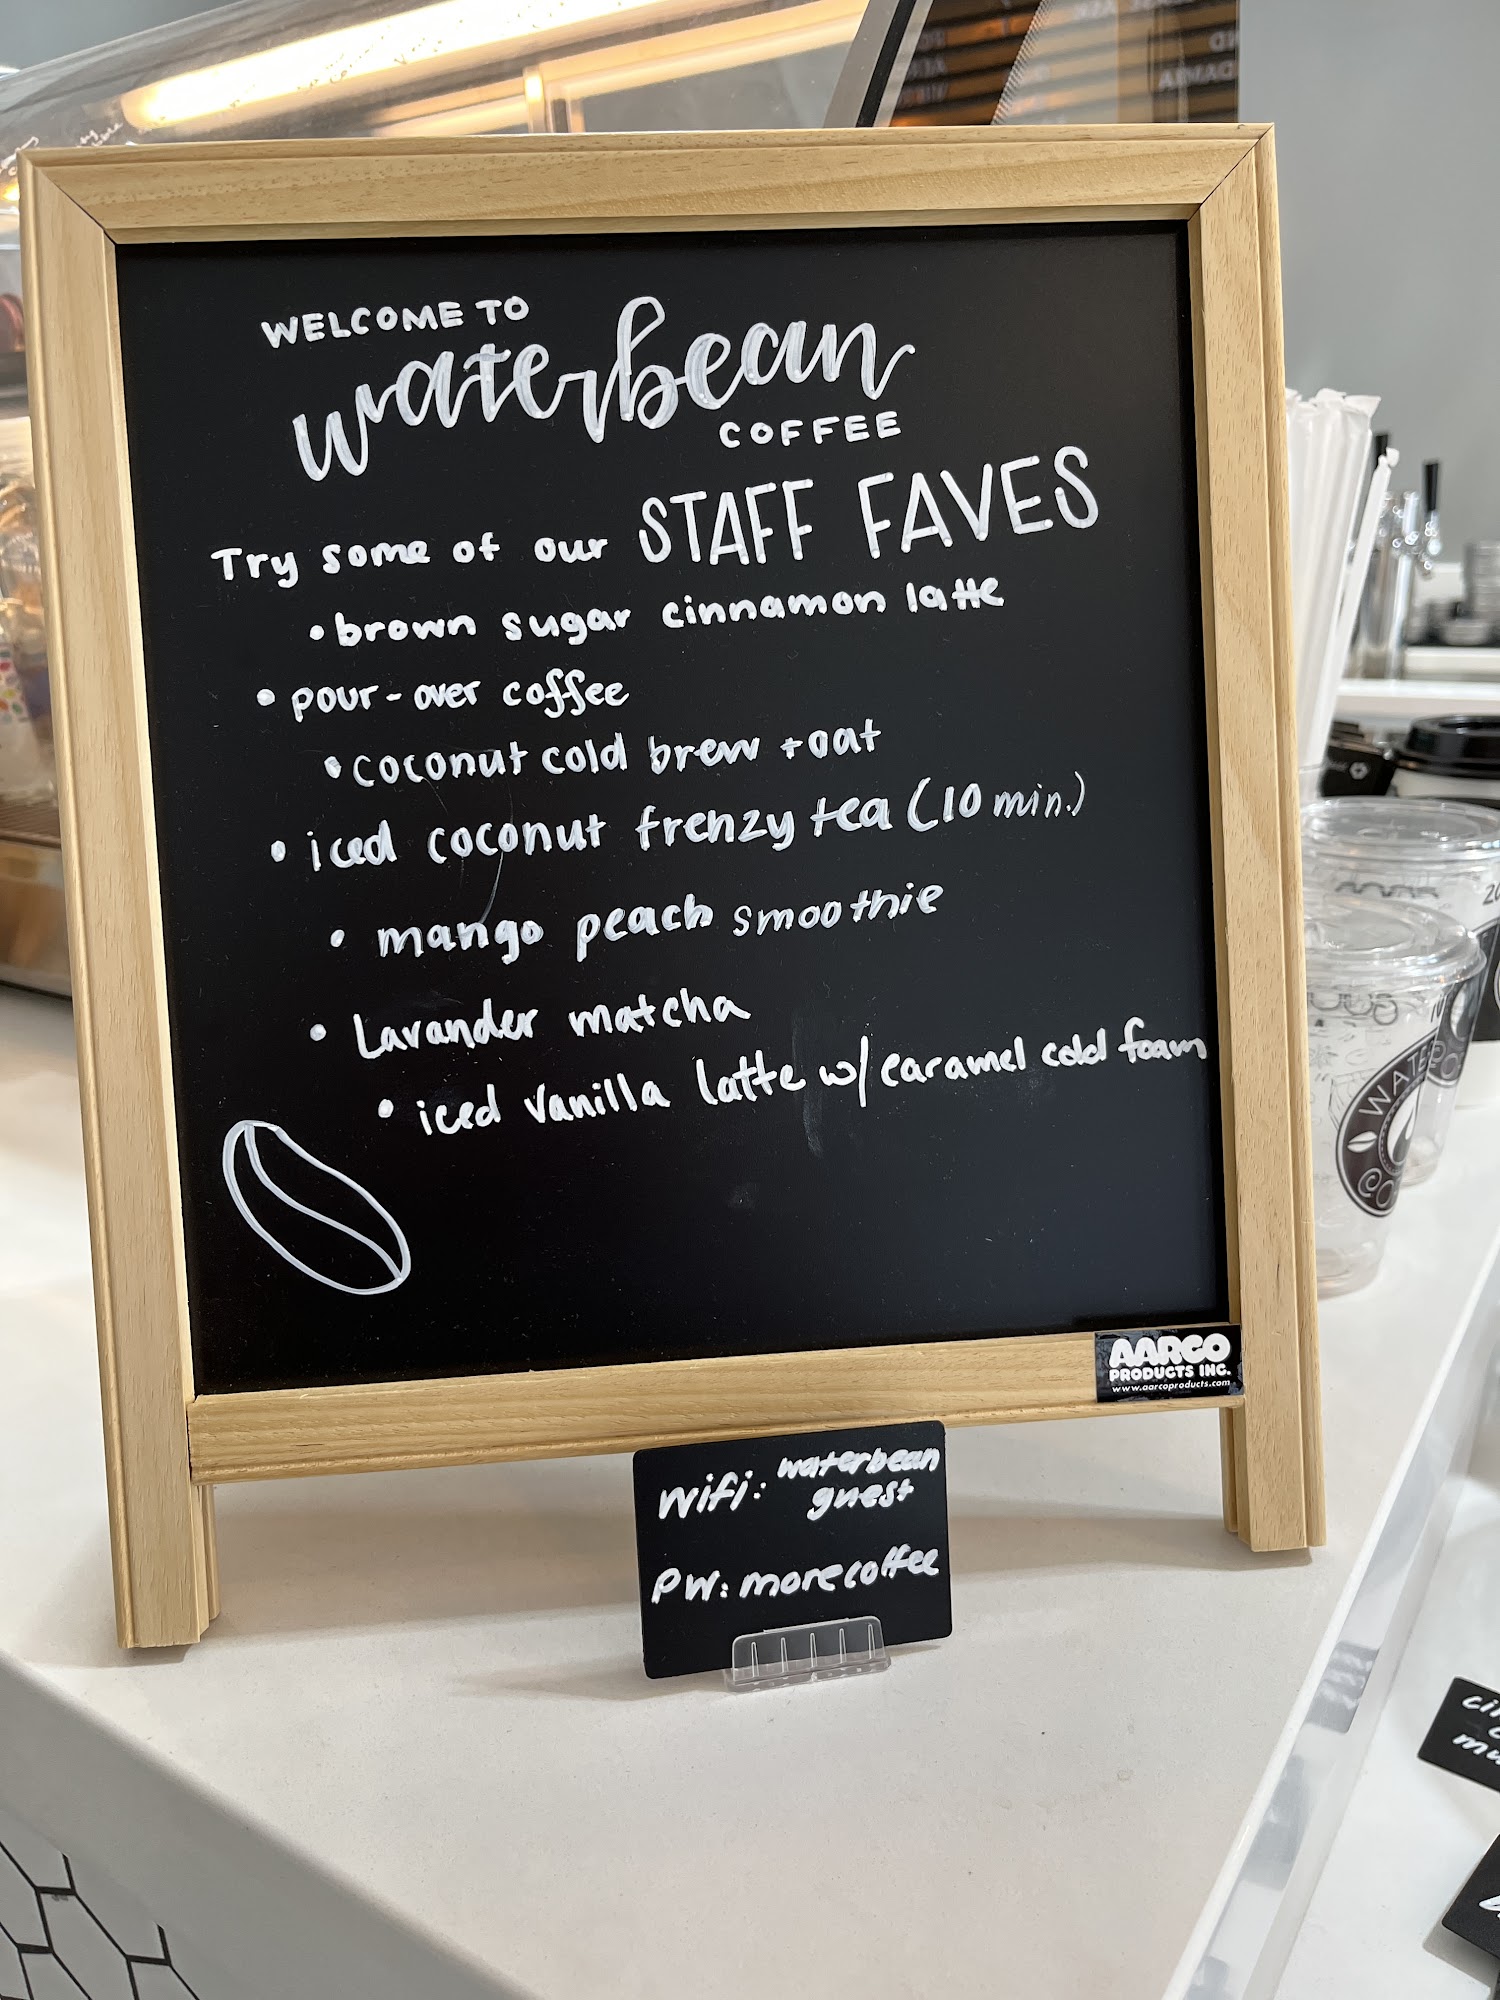 WELCOME TO
waterbean
COFFEE
Try some of our STAFF FAVES
• brown sugar cinnamon latte
• pour-over coffee
• coconut cold brew + oat
• iced coconut frenzy tea (10 min.)
• mango peach smoothie
• Lavander matcha
• iced vanilla latte w/ caramel cold foam
AARCO
PRODUCTS INC.
www.aarcoproducts.com
wifi: waterbean
guest
PW: morecoffee
WATE